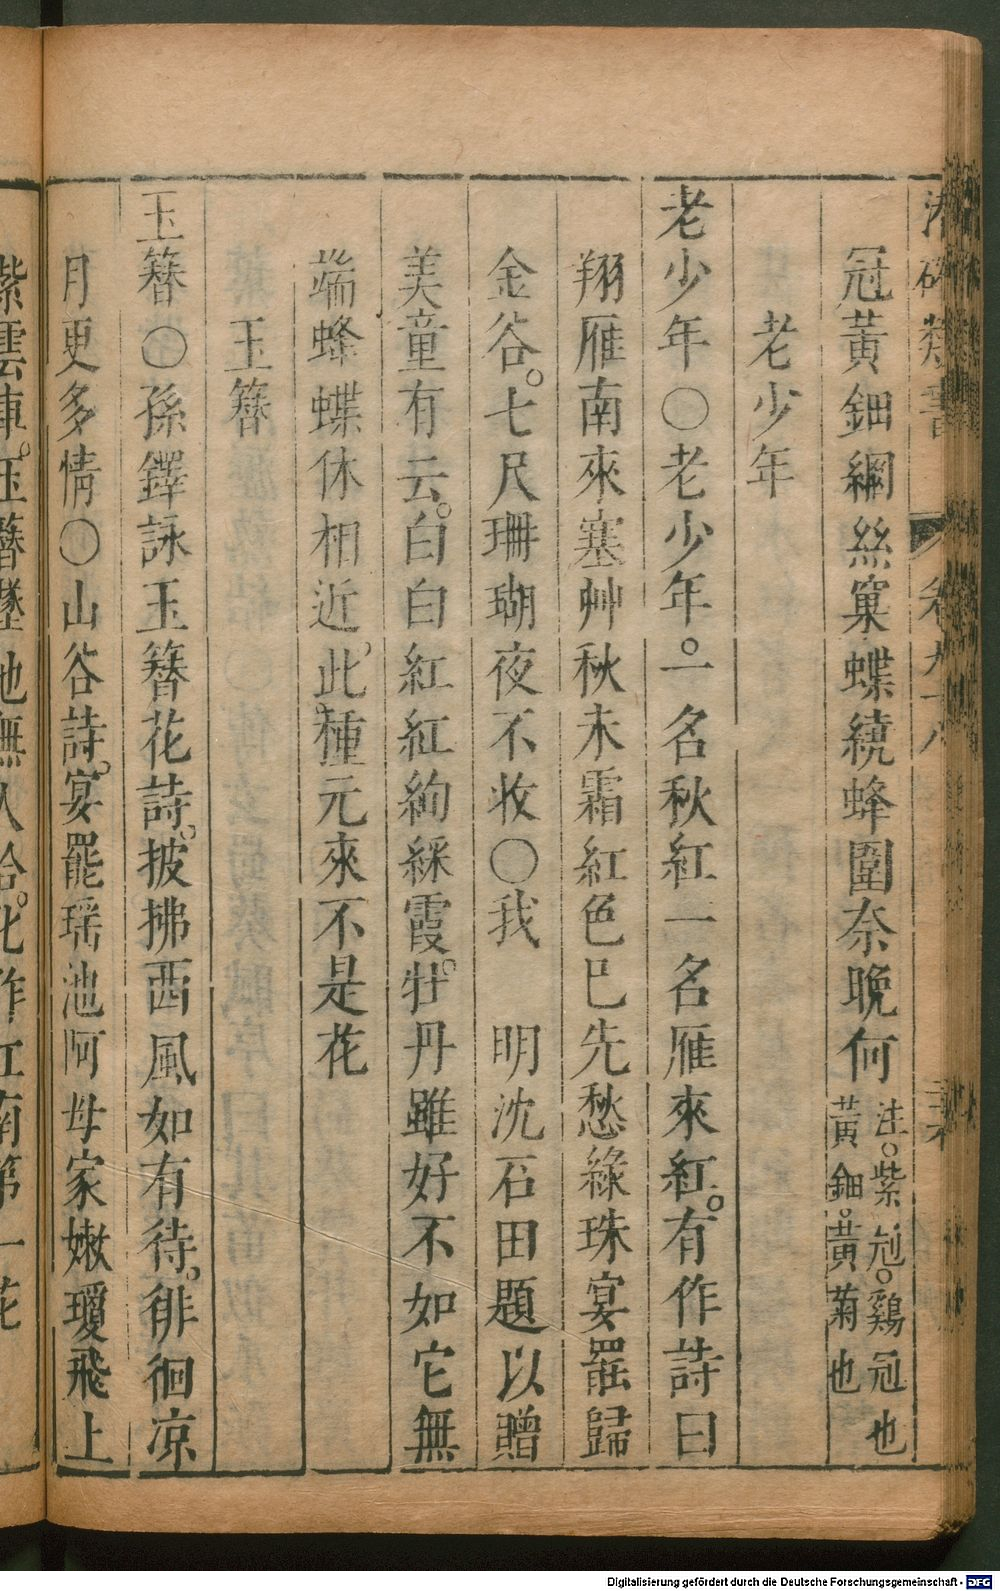 潛確類書 卷九十八
冠黃鈿綱絲窠蝶繞蜂圍奈晚何 注。紫冠。鷄冠也
黃鈿。黃菊也
老少年
老少年○老少年。一名秋紅一名雁來紅。有作詩曰
翔雁南來塞艸秋未霜紅色巳先愁綠珠宴罷歸
金谷。七尺珊瑚夜不收○我 明沈石田題以贈
美童有云。白白紅紅絢綵霞。牡丹雖好不如它無
端蜂蝶休相近。此種元來不是花
玉簪
玉簪○孫鐸詠玉簪花詩。披拂西風如有待。徘徊凉
月更多情○山谷詩。宴罷瑶池阿母家嫩瓊飛上
紫雲車。玉簪墜地無人拾。化作江南第一花
Digitalisierung gefördert durch die Deutsche Forschungsgemeinschaft - DFG